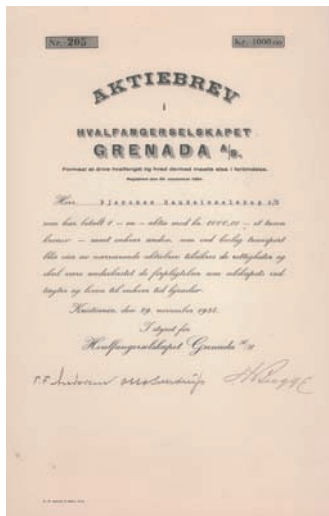 Nr. 205
Kr. 1000.00
AKTIEBREV
i
HVALFANGERSELSKAPET
GRENADA A/S.
Formaal at drive hvalfangst og hvad dermed maatte staa i forbindelse.
Herr Bjerknes Handelsselskap A/S
som har betalt 1 - en - aktie med kr. 1000,00 - et tusen
kroner - samt enhver anden, som ved lovlig transport
blir eier av nærværende aktiebrev tilsikres de rettigheter og
skal være underkastet de forpligtelser som selskapets ved-
tægter og loven til enhver tid hjemler.
Kristiania, den 29. november 1924.
I styret for
Hvalfangerselskapet Grenada A/S